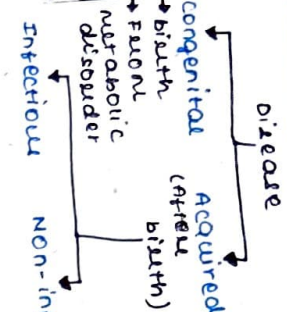 Disease
Congenital
→ birth
→ From
metabolic
disorder
Acquired
(After
birth)
Infectious
Non-in